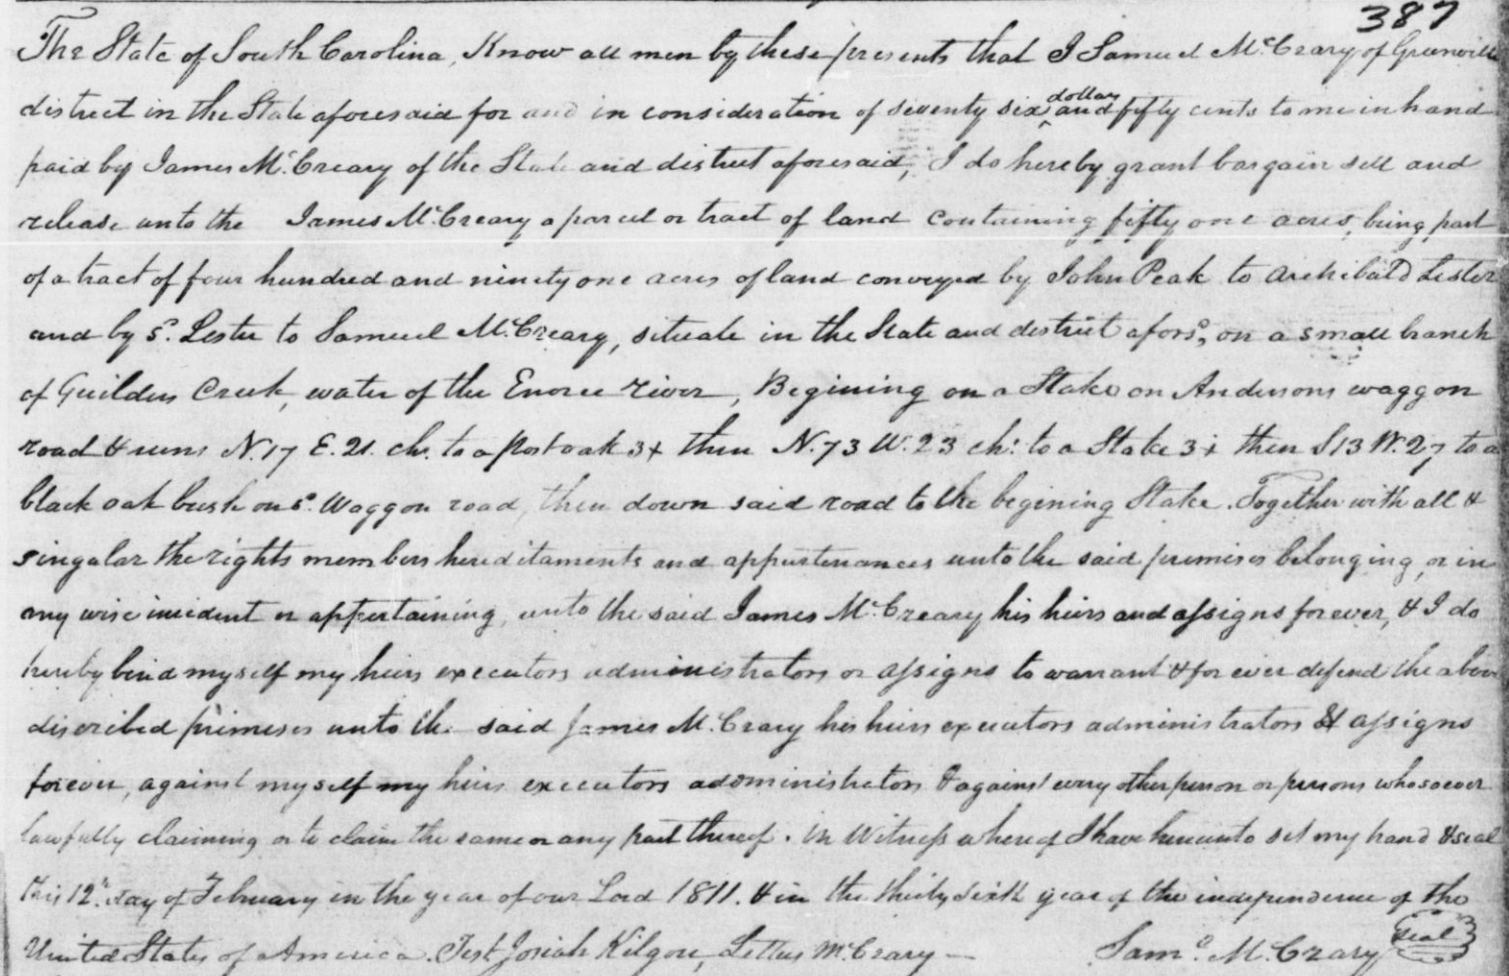 387
The State of South Carolina, Know all men by these presents that I Samuel McCrary of Greenville
district in the State aforesaid for and in consideration of seventy six dollars and fifty cents to me in hand
paid by James McCreary of the State and district aforesaid, I do hereby grant bargain sell and
release unto the James McCreary a parcel or tract of land containing fifty one acres, being part
of a tract of four hundred and ninety one acres of land conveyed by John Peak to Archibald Lester
and by sd. Lester to Samuel McCreary, situate in the State and district aforsd, on a small branch
of Guilders Creek, water of the Enoree River, Begining on a Stake on Andersons waggon
road & runs N.17 E. 21. ch. to a post oak 3x then N.73 W. 23 ch: to a Stake 3x then S13 W. 27 to a
black oak bush on sd. Waggon road, then down said road to the begining Stake. Together with all &
singular the rights members hereditaments and appurtenances unto the said premises belonging, or in
any wise incident or appertaining, unto the said James McCreary his heirs and assigns forever, & I do
hereby bind myself my heirs executors administrators or assigns to warrant & for ever defend the above
discribed premises unto the said James McCrary his heirs executors administrators & assigns
forever, against myself my heirs executors administrators & against every other person or persons whosoever
lawfully claiming or to claim the same or any part thereof. In Witness whereof I have hereunto set my hand & seal
this 12th day of February in the year of our Lord 1811. & in the thirty sixth year of the independence of the
United States of America. Test Josiah Kilgore, Lettus McCrary — Saml. McCrary Seal